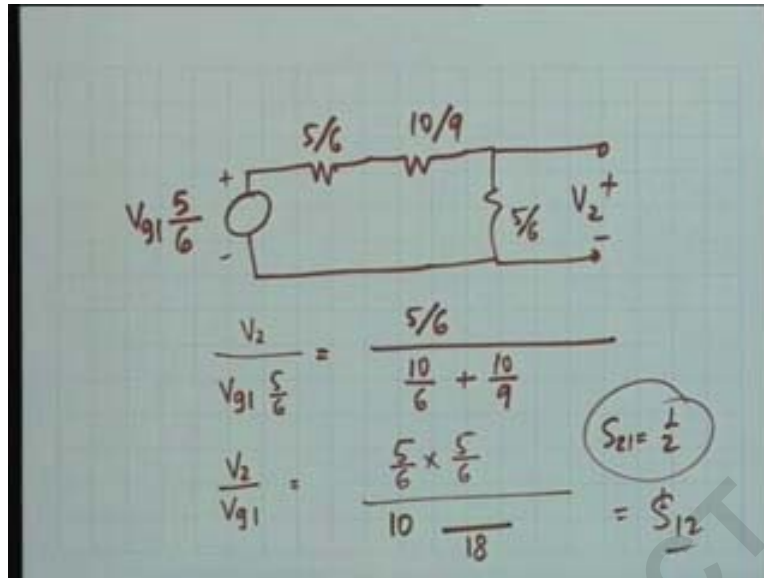 5/6 10/9
+
Vg1 5/6
-
5/6
V2
+
-
V2 / Vg1 5/6 = 5/6 / 10/6 + 10/9
S21 = 1/2
V2 / Vg1 = 5/6 × 5/6 / 10 — 18
= S12
CT